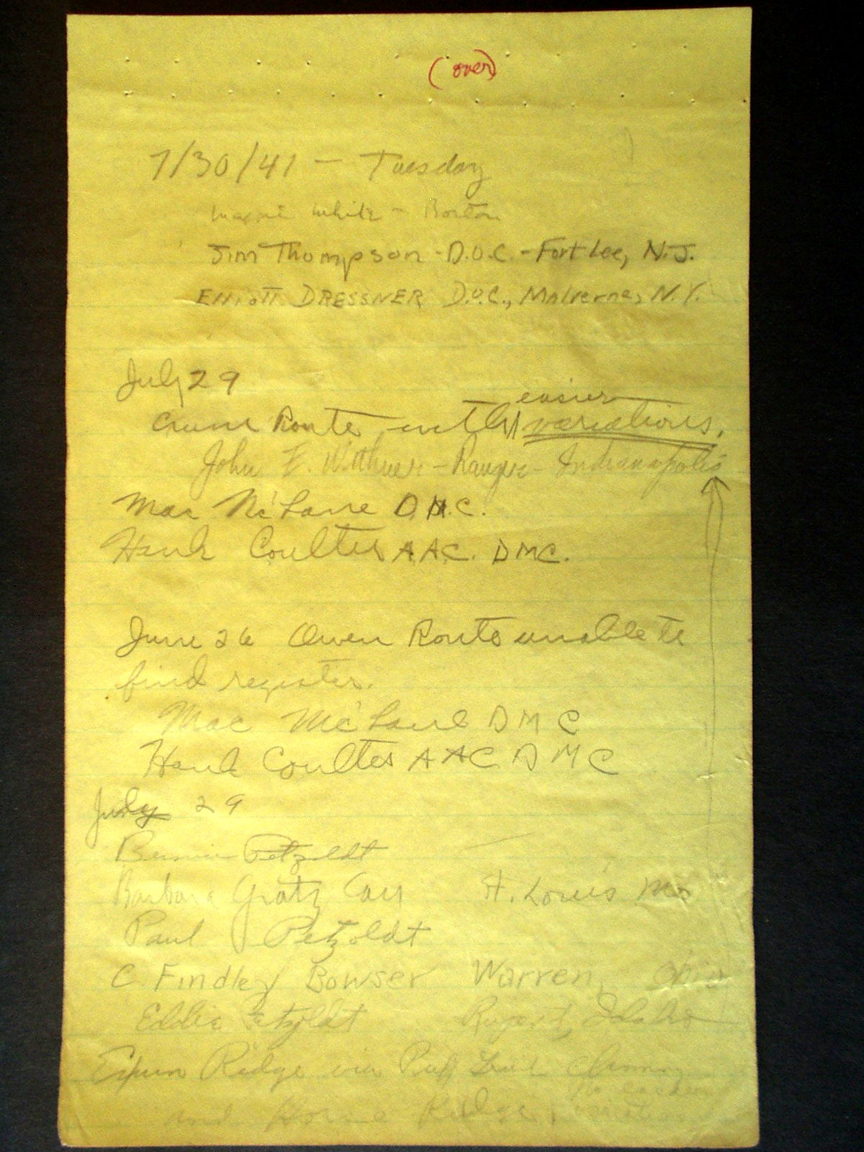 (over)
7/30/41 - Tuesday
white - Boston
Jim Thompson - D.O.C. - Fort Lee, N.J.
Elliott DRESSNER D.O.C., Malverne, N.Y.
July 29
easier
Route with variations.
John F. - Ranger - Indianapolis
Mac Mc'Lane D.M.C.
Hank Coulter A.A.C. D.M.C.
June 26 Owen Route unable to
find register.
Mac Mc'Lane D M C
Hank Coulter A A C D M C
July 29
Bernice Petzoldt
Barbara Gratz Carr St. Louis Mo
Paul Petzoldt
C Findley Bowser Warren, Ohio
Eddie Petzoldt Rupert, Idaho
Exum Ridge via
and Ridge